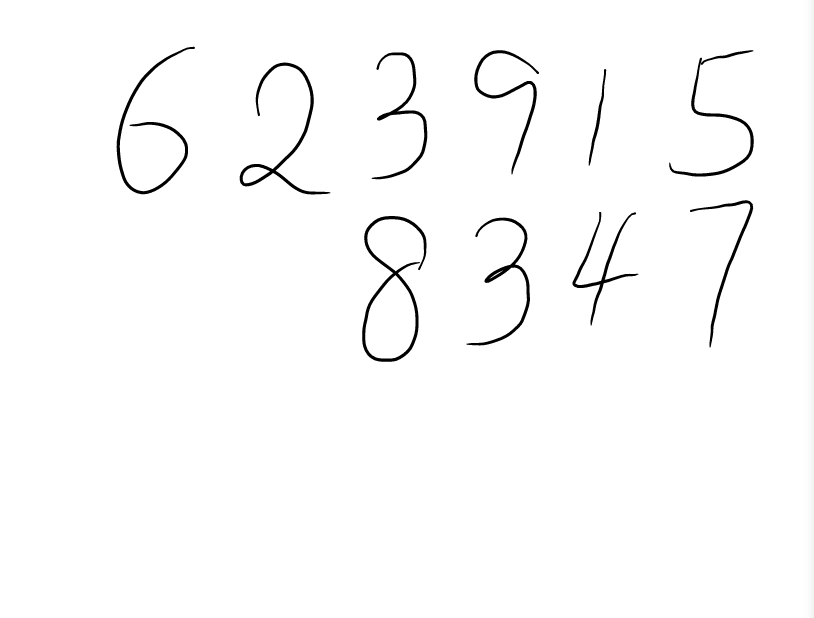 623915
8347